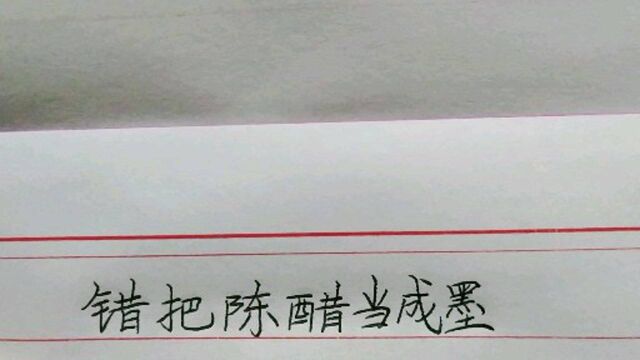 错把陈醋当成墨